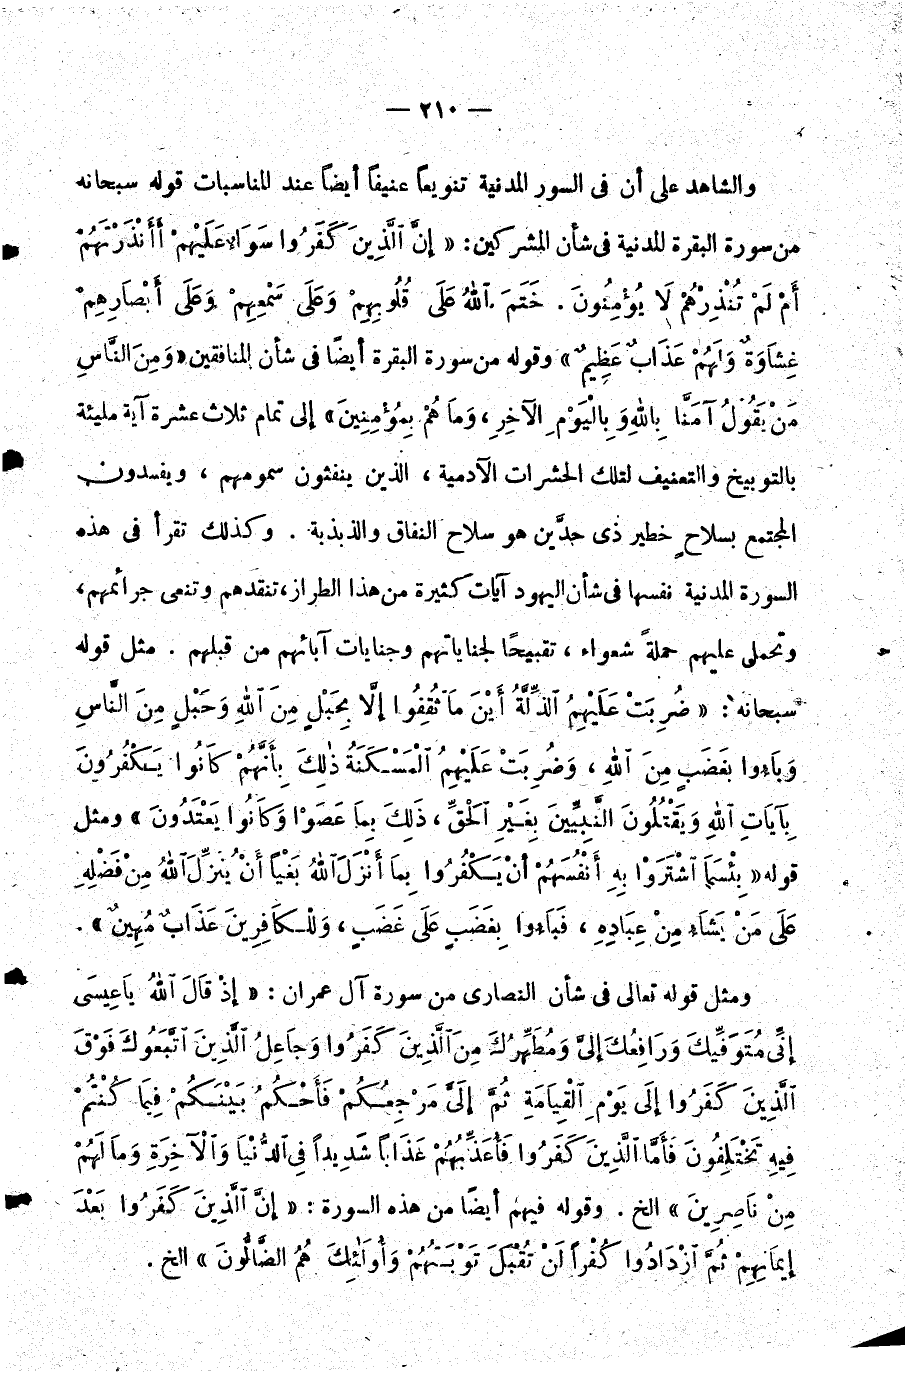 — ٢١٠ —
والشاهد على أن فى السور المدنية تنويعاً عنيفاً أيضاً عند المناسبات قوله سبحانه
من سورة البقرة المدنية فى شأن المشركين: « إِنَّ ٱلَّذِينَ كَفَرُوا سَوَاءٌ عَلَيْهِمْ أَأَنْذَرْتَهُمْ
أَمْ لَمْ تُنْذِرْهُمْ لَا يُؤْمِنُونَ . خَتَمَ ٱللهُ عَلَى قُلُوبِهِمْ وَعَلَى سَمْعِهِمْ وَعَلَى أَبْصَارِهِمْ
غِشَاوَةٌ وَلَهُمْ عَذَابٌ عَظِيمٌ » وقوله من سورة البقرة أيضًا فى شأن المنافقين « وَمِنَ النَّاسِ
مَنْ يَقُولُ آمَنَّا بِاللهِ وَبِالْيَوْمِ الآخِرِ ، وَمَا هُمْ بِمُؤْمِنِينَ » إلى تمام ثلاث عشرة آية مليئة
بالتوبيخ والتعنيف لتلك الحشرات الآدمية ، الذين ينفثون سمومهم ، ويفسدون
المجتمع بسلاحٍ خطير ذى حدَّين هو سلاح النفاق والذبذبة . وكذلك تقرأ فى هذه
السورة المدنية نفسها فى شأن اليهود آيات كثيرة من هذا الطراز، تنقدهم وتنعى جرائمهم،
وتحمل عليهم حملةً شعواء ، تقبيحًا لجناياتهم وجنايات آبائهم من قبلهم . مثل قوله
سبحانه : « ضُرِبَتْ عَلَيْهِمُ ٱلذِّلَّةُ أَيْنَ مَا ثُقِفُوا إِلَّا بِحَبْلٍ مِنَ ٱللهِ وَحَبْلٍ مِنَ النَّاسِ
وَبَاءوا بِغَضَبٍ مِنَ ٱللهِ ، وَضُرِبَتْ عَلَيْهِمُ ٱلْمَسْكَنَةُ ذٰلِكَ بِأَنَّهُمْ كَانُوا يَكْفُرُونَ
بِآيَاتِ ٱللهِ وَيَقْتُلُونَ النَّبِيِّينَ بِغَيْرِ ٱلْحَقِّ ، ذَلِكَ بِمَا عَصَوْا وَكَانُوا يَعْتَدُونَ » ومثل
قوله « بِئْسَمَا ٱشْتَرَوْا بِهِ أَنْفُسَهُمْ أَنْ يَكْفُرُوا بِمَا أَنْزَلَ ٱللهُ بَغْياً أَنْ يُنَزِّلَ ٱللهُ مِنْ فَضْلِهِ
عَلَى مَنْ يَشَاءُ مِنْ عِبَادِهِ ، فَبَاءوا بِغَضَبٍ عَلَى غَضَبٍ ، وَلِلْكَافِرِينَ عَذَابٌ مُهِينٌ » .
ومثل قوله تعالى فى شأن النصارى من سورة آل عمران : « إِذْ قَالَ ٱللهُ يَا عِيسَى
إِنِّى مُتَوَفِّيكَ وَرَافِعُكَ إِلَىَّ وَمُطَهِّرُكَ مِنَ ٱلَّذِينَ كَفَرُوا وَجَاعِلُ ٱلَّذِينَ ٱتَّبَعُوكَ فَوْقَ
ٱلَّذِينَ كَفَرُوا إِلَى يَوْمِ ٱلْقِيَامَةِ ثُمَّ إِلَىَّ مَرْجِعُكُمْ فَأَحْكُمُ بَيْنَكُمْ فِيمَا كُنْتُمْ
فِيهِ تَخْتَلِفُونَ فَأَمَّا ٱلَّذِينَ كَفَرُوا فَأُعَذِّبُهُمْ عَذَاباً شَدِيداً فِى ٱلدُّنْيَا وَٱلْآخِرَةِ وَمَا لَهُمْ
مِنْ نَاصِرِينَ » الخ . وقوله فيهم أيضًا من هذه السورة : « إِنَّ ٱلَّذِينَ كَفَرُوا بَعْدَ
إِيمَانِهِمْ ثُمَّ ٱزْدَادُوا كُفْراً لَنْ تُقْبَلَ تَوْبَتُهُمْ وَأُولَٰئِكَ هُمُ الضَّالُّونَ » الخ .